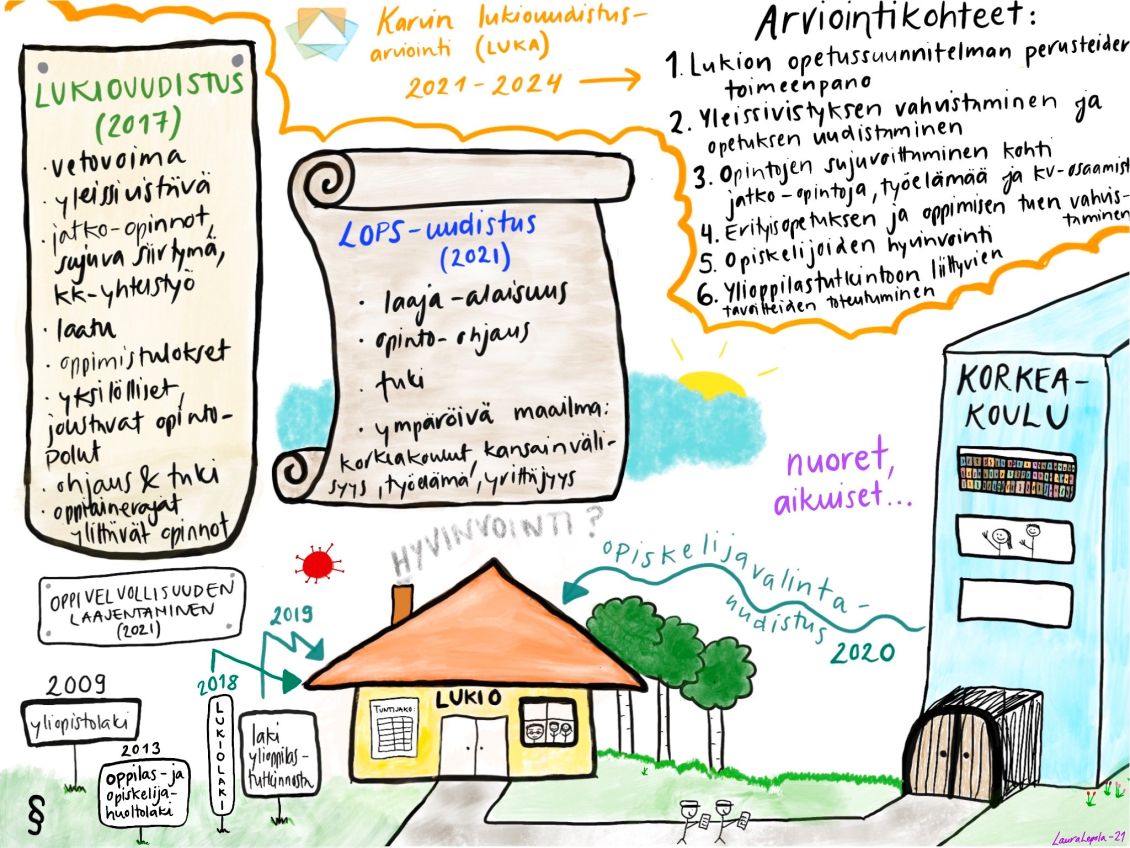 Karvin lukiouudistus-
arviointi (LUKA)
2021-2024
Arviointikohteet:
1. Lukion opetussuunnitelman perusteiden
toimeenpano
2. Yleissivistyksen vahvistaminen ja
opetuksen uudistaminen
3. Opintojen sujuvoittaminen kohti
jatko-opintoja, työelämää ja kv-osaamist
4. Erityisopetuksen ja oppimisen tuen vahvis-
taminen
5. Opiskelijoiden hyvinvointi
6. Ylioppilastutkintoon liittyvien
tavoitteiden toteutuminen
LUKIOUUDISTUS
(2017)
· vetovoima
· yleissivistävä
· jatko-opinnot,
sujuva siirtymä,
kk-yhteistyö
· laatu
· oppimistulokset
· yksilölliset,
joustavat opinto-
polut
· ohjaus & tuki
· oppiainerajat
ylittävät opinnot
LOPS-uudistus
(2021)
· laaja-alaisuus
· opinto-ohjaus
· tuki
· ympäröivä maailma:
korkeakoulut, kansainväli-
syys, työelämä, yrittäjyys
KORKEA-
KOULU
nuoret,
aikuiset...
HYVINVOINTI?
opiskelijavalinta-
uudistus
2020
OPPIVELVOLLISUUDEN
LAAJENTAMINEN
(2021)
2019
2018
2009
yliopistolaki
2013
oppilas- ja
opiskelija-
huoltolaki
LUKIOLAKI
laki
ylioppilas-
tutkinnosta
LUKIO
TUNTIJAKO:
§
LauraLepola-21